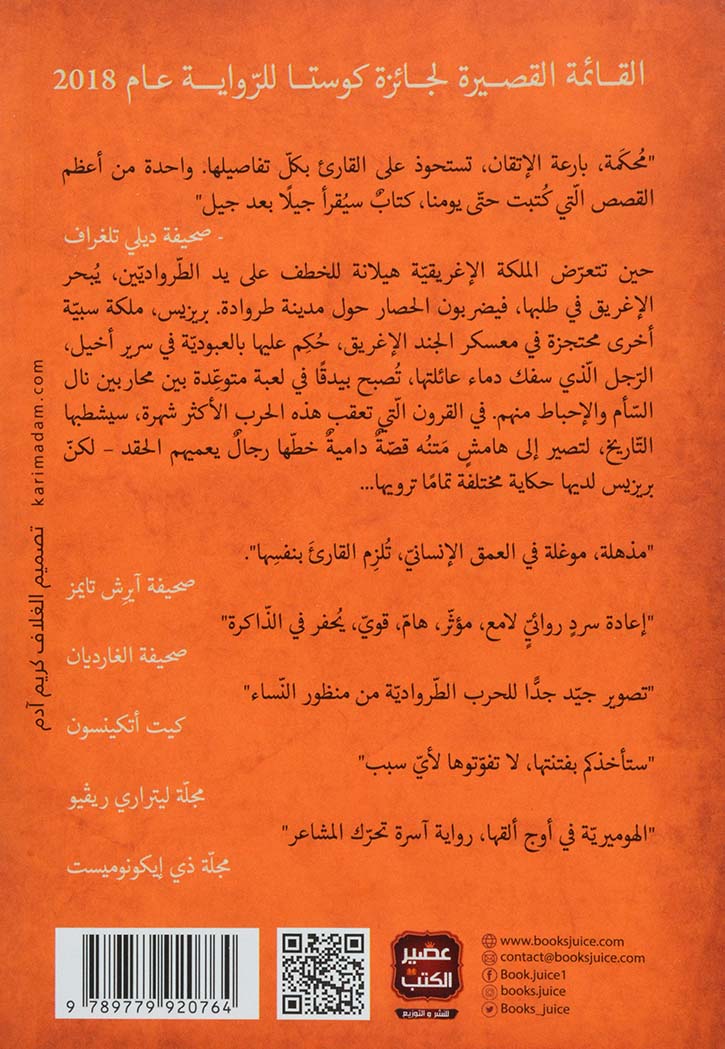 القائمة القصيرة لجائزة كوستا للرّواية عام 2018
"مُحكَمة، بارعة الإتقان، تستحوذ على القارئ بكلّ تفاصيلها. واحدة من أعظم
القصص الّتي كُتبت حتّى يومنا، كتابٌ سيُقرأ جيلًا بعد جيل"
- صحيفة ديلي تلغراف
حين تتعرّض الملكة الإغريقيّة هيلانة للخطف على يد الطّرواديّين، يُبحر
الإغريق في طلبها، فيضربون الحصار حول مدينة طروادة. بريزيس، ملكة سبيّة
أخرى محتجزة في معسكر الجند الإغريق، حُكِم عليها بالعبوديّة في سرير أخيل،
الرّجل الّذي سفك دماء عائلتها، تُصبح بيدقًا في لعبة متوعِّدة بين محاربين نال
السّأم والإحباط منهم. في القرون الّتي تعقب هذه الحرب الأكثر شهرة، سيشطبها
التّاريخ، لتصير إلى هامشٍ مَتنُه قصّةٌ داميةٌ خطّها رجالٌ يعميهم الحقد – لكنّ
بريزيس لديها حكاية مختلفة تمامًا ترويها...
"مذهلة، موغلة في العمق الإنسانيّ، تُلزِم القارئَ بنفسِها".
صحيفة آيرِش تايمز
"إعادة سردٍ روائيّ لامع، مؤثّر، هامّ، قويّ، يُحفر في الذّاكرة"
صحيفة الغارديان
"تصوير جيّد جدًّا للحرب الطّرواديّة من منظور النّساء"
كيت أتكينسون
"ستأخذكم بفتنتها، لا تفوّتوها لأيّ سبب"
مجلّة ليتراري ريڤيو
"الهوميريّة في أوج ألقها، رواية آسرة تحرّك المشاعر"
مجلّة ذي إيكونوميست
تصميم الغلاف كريم آدم
karimadam.com
9 789779 920764
عصير
الكتب
للنشر و التوزيع
www.booksjuice.com
contact@booksjuice.com
Book.juice1
books.juice
Books_juice